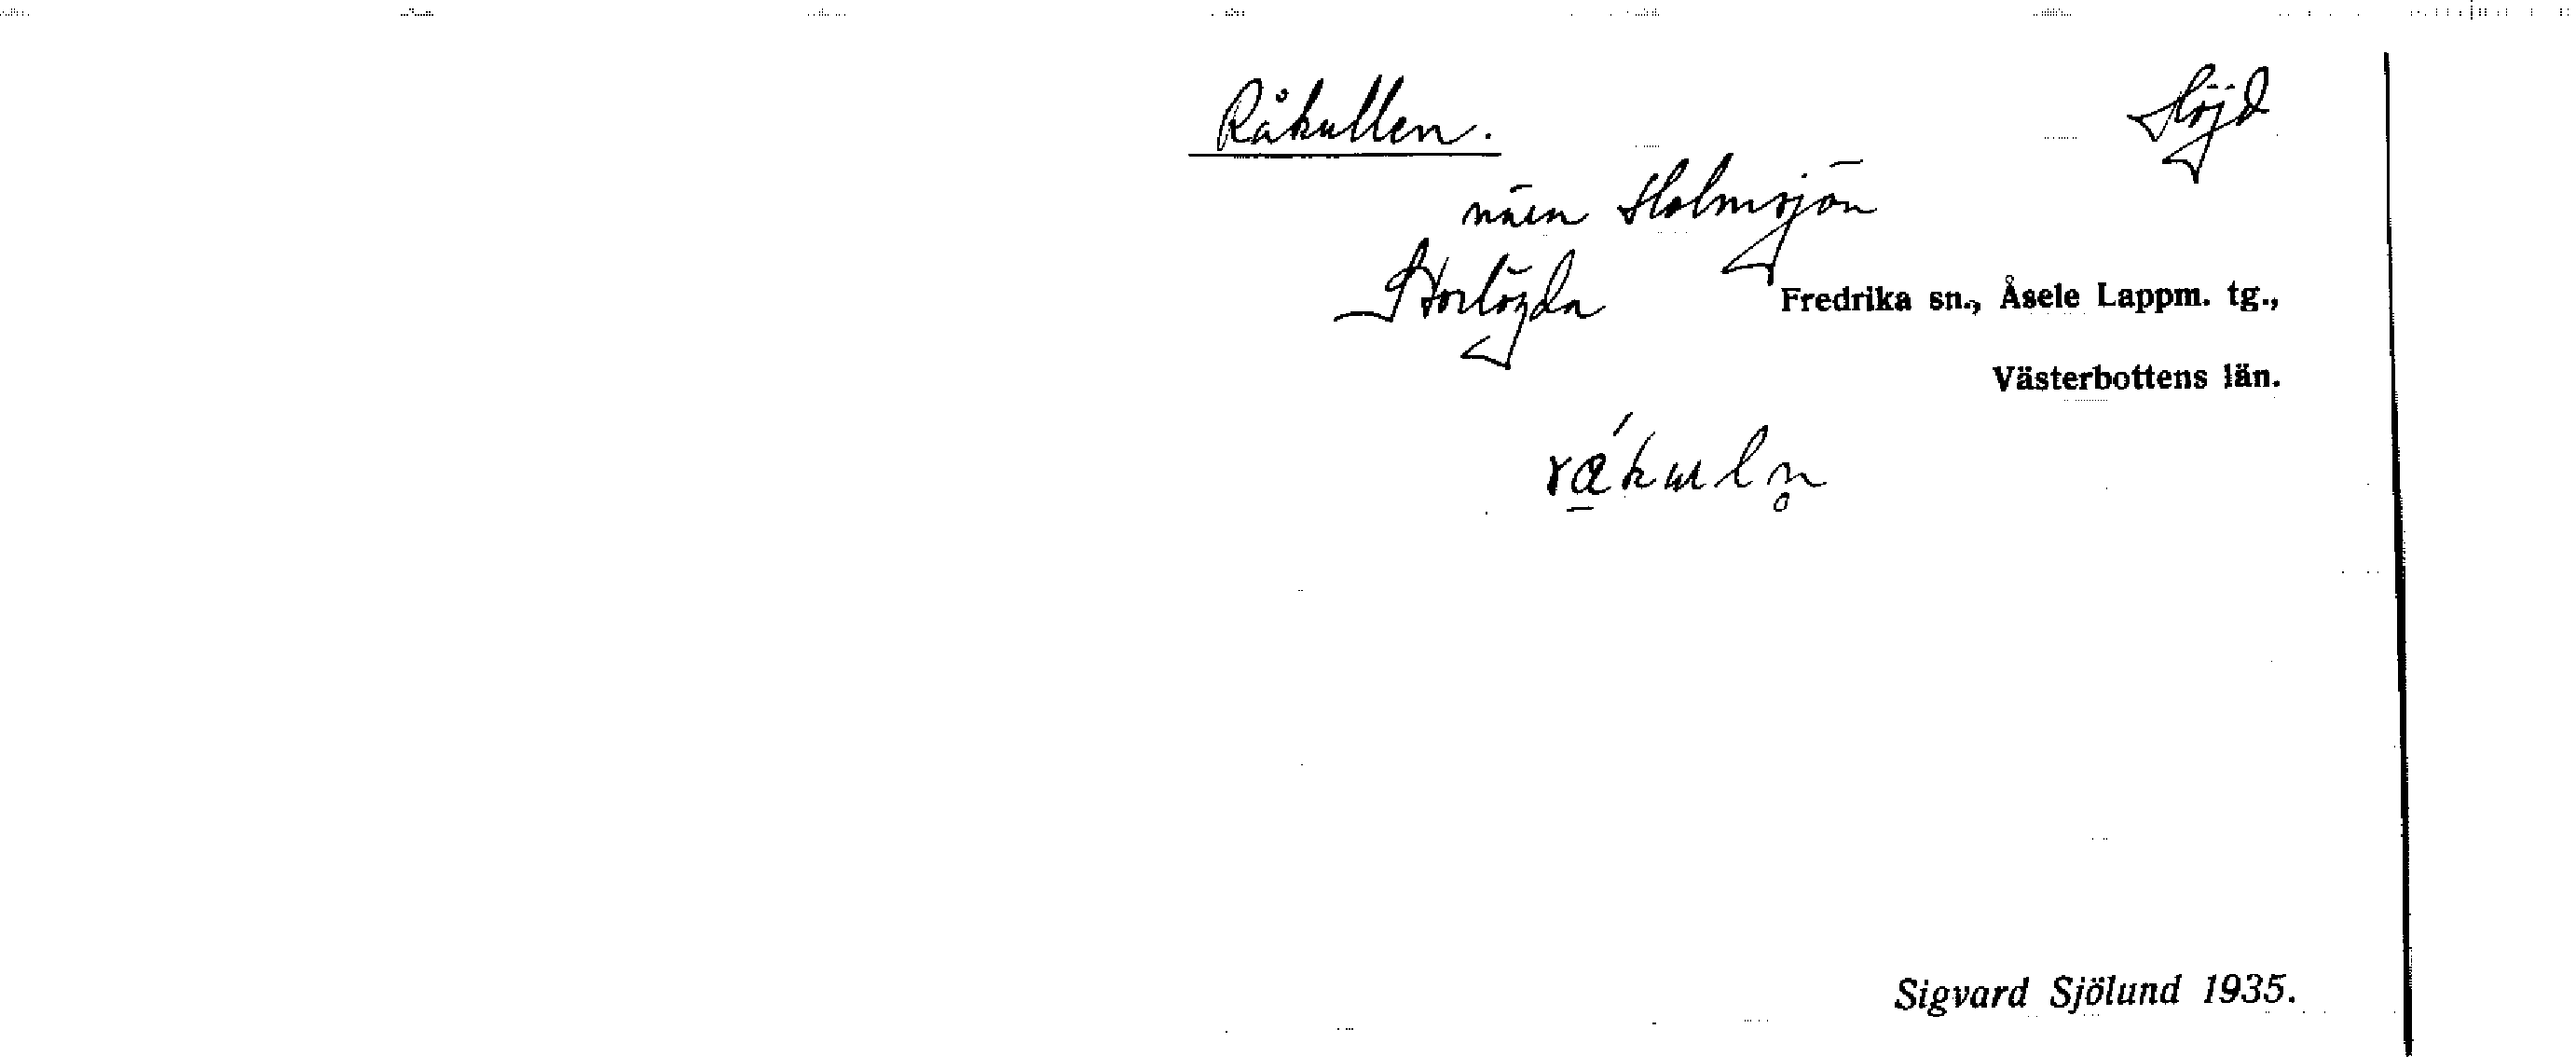 Råkullen. Höjd
nära Holmsjön
Storlögda Fredrika sn., Åsele Lappm. tg.,
Västerbottens län.
Sigvard Sjölund 1935.